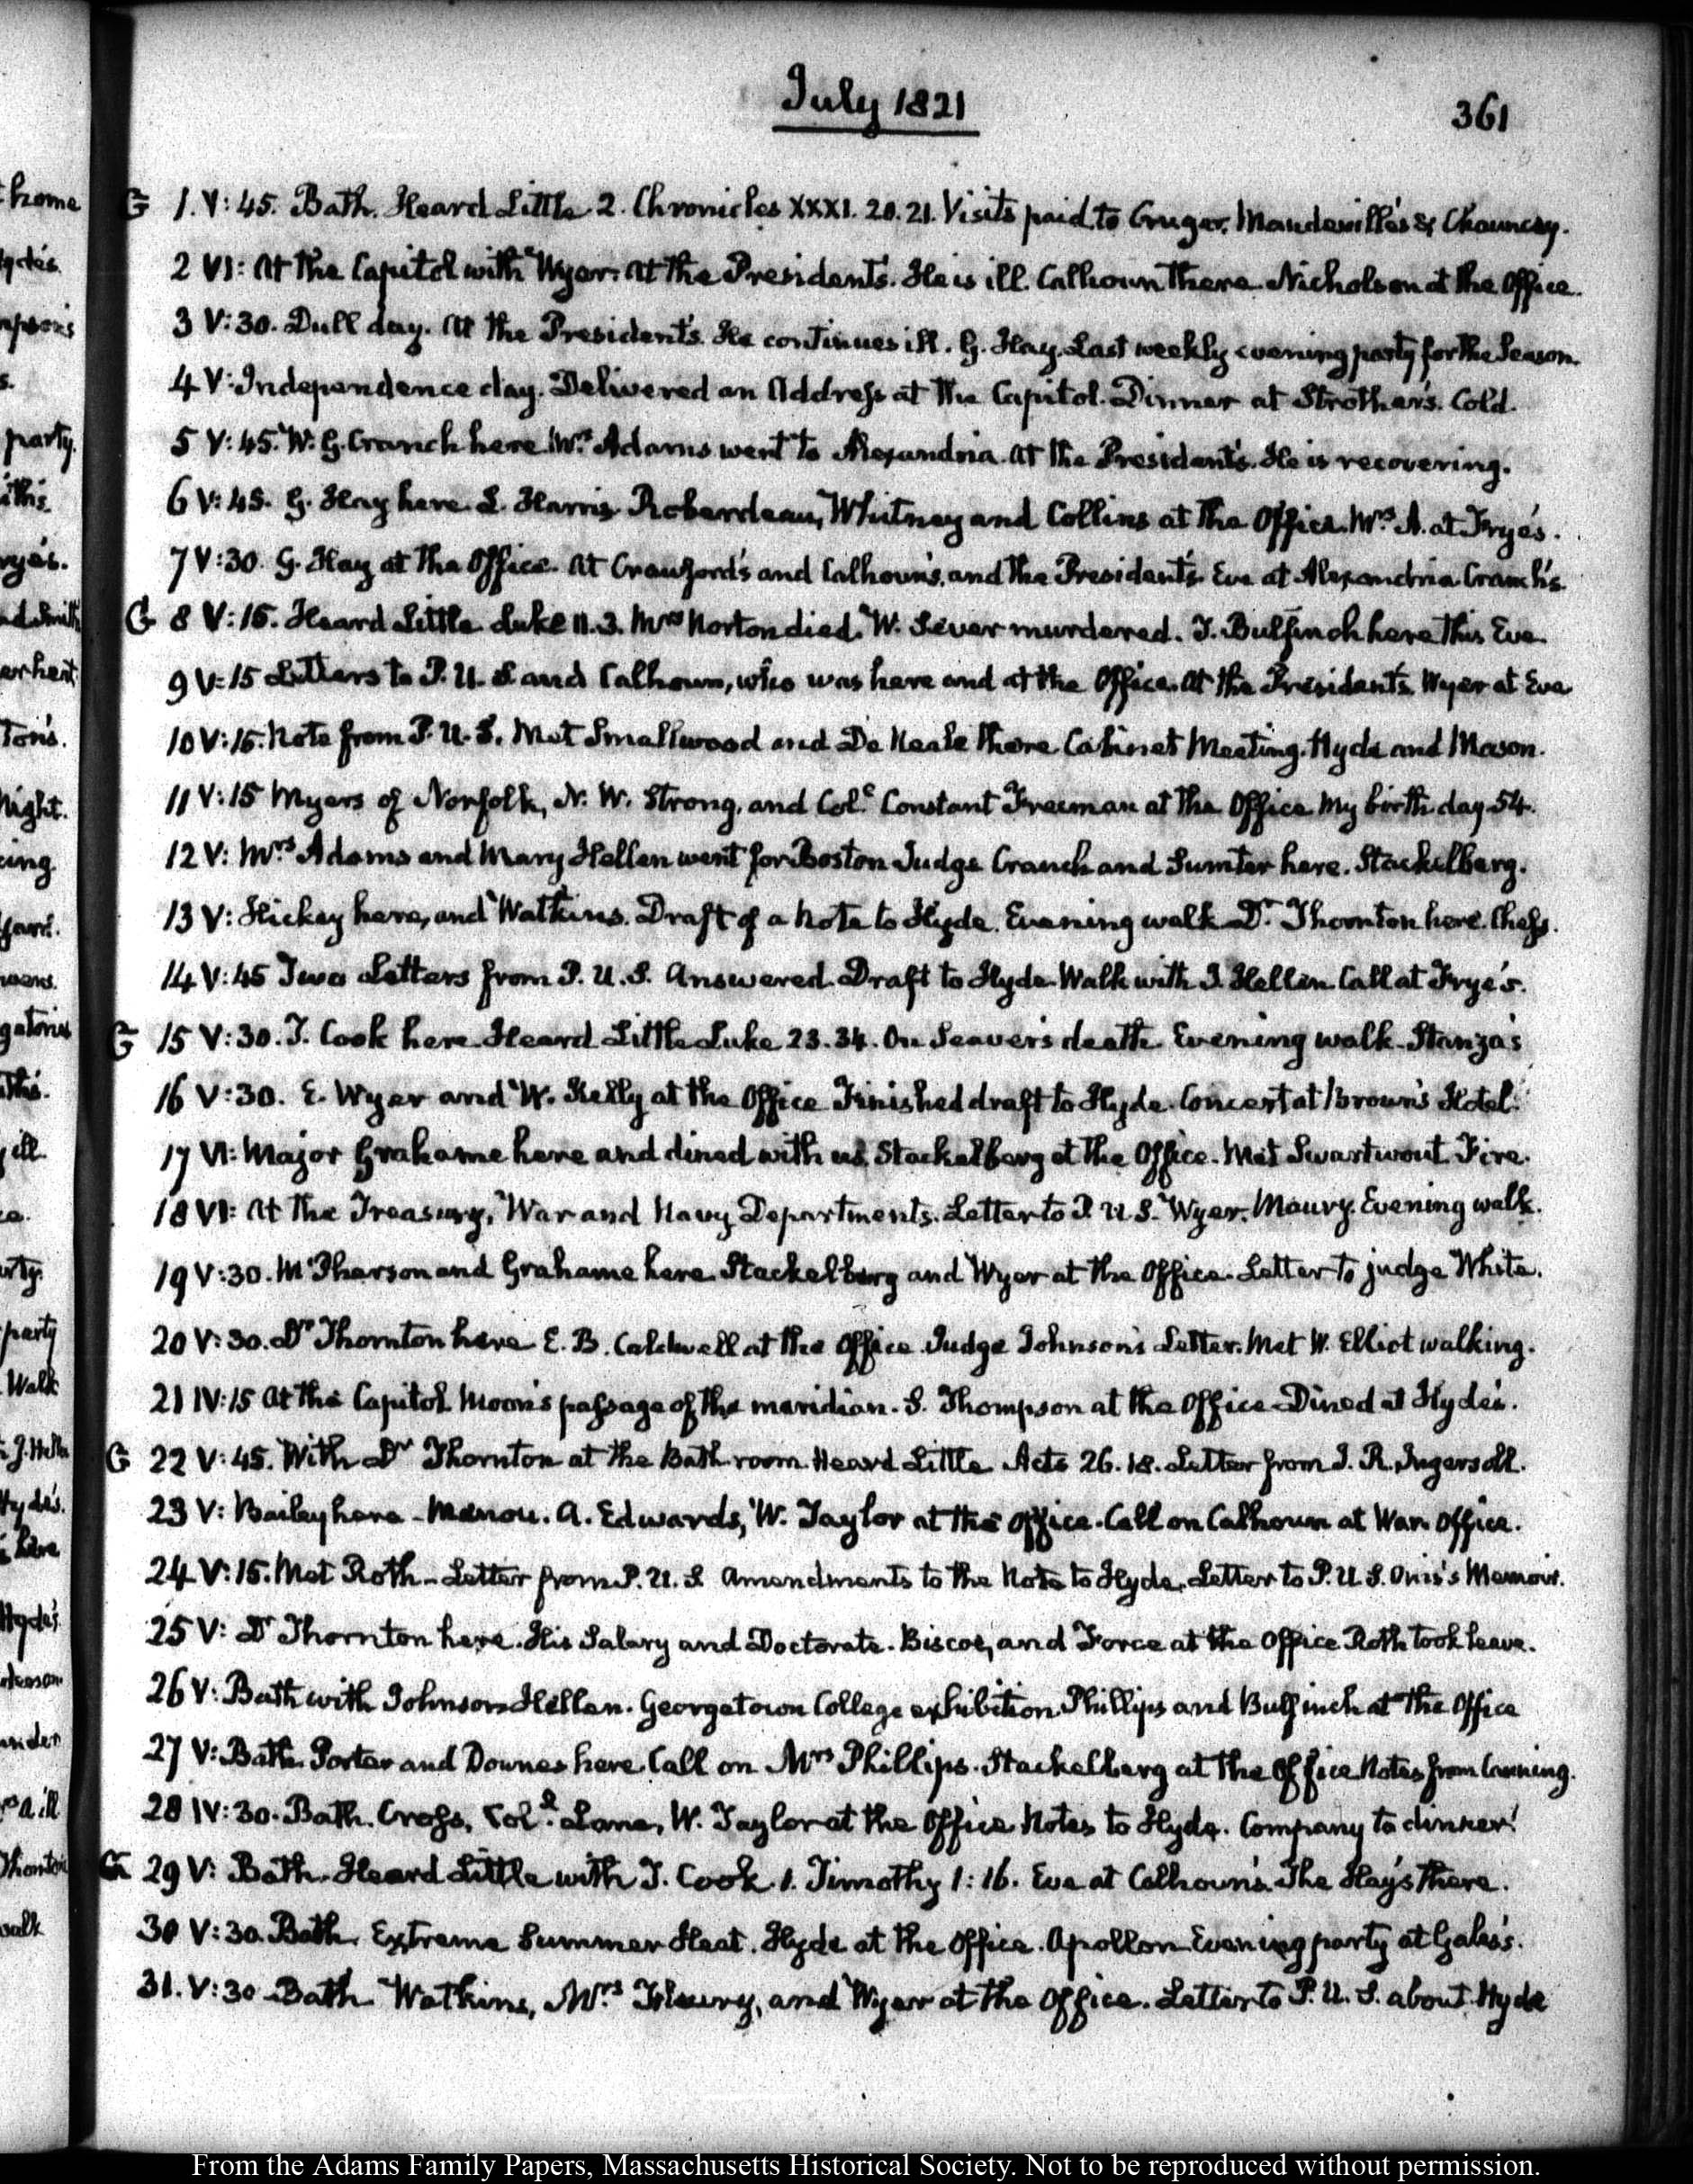 July 1821
361
G 1. V: 45. Bath. Heard Little 2. Chronicles XXXI. 20. 21. Visits paid to Cruger. Mandeville's & Chauncey.
2 VI: At the Capitol with Wyer. At the President's. He is ill. Calhoun there. Nicholson at the Office.
3 V: 30. Dull day. At the President's. He continues ill. G. Hay. Last weekly evening party for the Season.
4 V: Independence day. Delivered an Address at the Capitol. Dinner at Strother's. Cold.
5 V: 45. W. G. Cranch here. Mrs Adams went to Alexandria. At the President's. He is recovering.
6 V: 45. G. Hay here. L. Harris. Roberdeau, Whitney and Collins at the Office. Mrs A. at Frye's.
7 V: 30. G. Hay at the Office. At Crawford's and Calhoun's, and the President's. Eve at Alexandria Cranch's.
G 8 V: 15. Heard Little Luke 11. 3. Mrs Norton died. W. Sever murdered. T. Bulfinch here this Eve.
9 V: 15 Letters to P. U. S. and Calhoun, who was here and at the Office. At the President's. Wyer at Eve
10 V: 15. Note from P. U. S. Met Smallwood and De Neale there. Cabinet Meeting. Hyde and Mason.
11 V: 15 Myers of Norfolk, N. W. Strong, and Coll. Constant Freeman at the Office. My birth day 54.
12 V: Mrs Adams and Mary Hellen went for Boston. Judge Cranch and Sumter here. Stackelberg.
13 V: Hickey here, and Watkins. Draft of a Note to Hyde. Evening walk. Dr Thornton here. Chess.
14 V: 45 Two Letters from P. U. S. Answered. Draft to Hyde. Walk with J. Hellen. Call at Frye's.
G 15 V: 30. T. Cook here. Heard Little Luke 23. 34. On Seaver's death. Evening walk. Stanza's
16 V: 30. E. Wyer and W. Kelly at the Office. Finished draft to Hyde. Concert at Brown's Hotel.
17 VI: Major Grahame here and dined with us. Stackelberg at the Office. Met Swartwout. Fire.
18 VI: At the Treasury, War and Navy Departments. Letter to P. U. S. Wyer. Maury. Evening walk.
19 V: 30. McPherson and Grahame here. Stackelberg and Wyer at the Office. Letter to judge White.
20 V: 30. Dr Thornton here. E. B. Caldwell at the Office. Judge Johnson's Letter. Met W. Elliot walking.
21 IV: 15 At the Capitol. Moon's passage of the meridian. S. Thompson at the Office. Dined at Hyde's.
G 22 V: 45. With Dr Thornton at the Bath room. Heard Little Acts 26. 18. Letter from J. R. Ingersoll.
23 V: Bailey here. Menou. A. Edwards, W. Taylor at the Office. Call on Calhoun at War Office.
24 V: 15. Met Roth. Letter from P. U. S. Amendments to the Note to Hyde. Letter to P. U. S. Onis's Memoir.
25 V: Dr Thornton here. His Salary and Doctorate. Biscoe, and Force at the Office. Roth took leave.
26 V: Bath with Johnson Hellen. Georgetown College exhibition. Phillips and Bulfinch at the Office
27 V: Bath. Porter and Downes here. Call on Mrs Phillips. Stackelberg at the Office. Notes from Canning.
28 IV: 30. Bath. Cross, Coll. Lane, W. Taylor at the Office. Notes to Hyde. Company to dinner.
G 29 V: Bath. Heard Little with T. Cook. 1. Timothy 1: 16. Eve at Calhoun's. The Hay's there.
30 V: 30. Bath. Extreme Summer Heat. Hyde at the Office. Apollon. Evening party at Gales's.
31. V: 30 Bath. Watkins, and Wyer at the Office. Letter to P. U. S. about Hyde
From the Adams Family Papers, Massachusetts Historical Society. Not to be reproduced without permission.